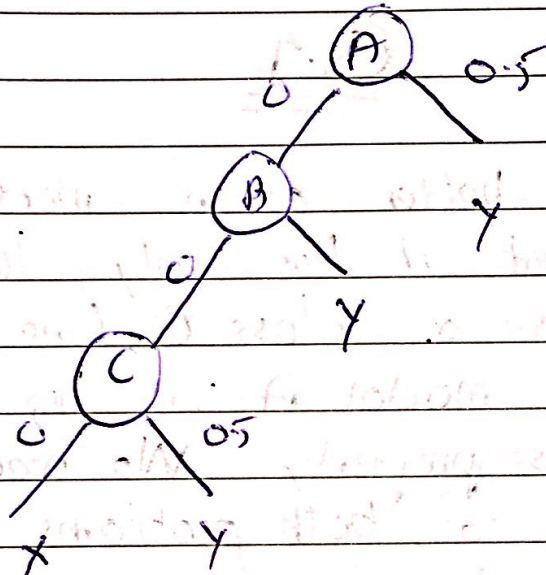 A
0 0.5
B
Y
0
Y
C
0 05
X Y